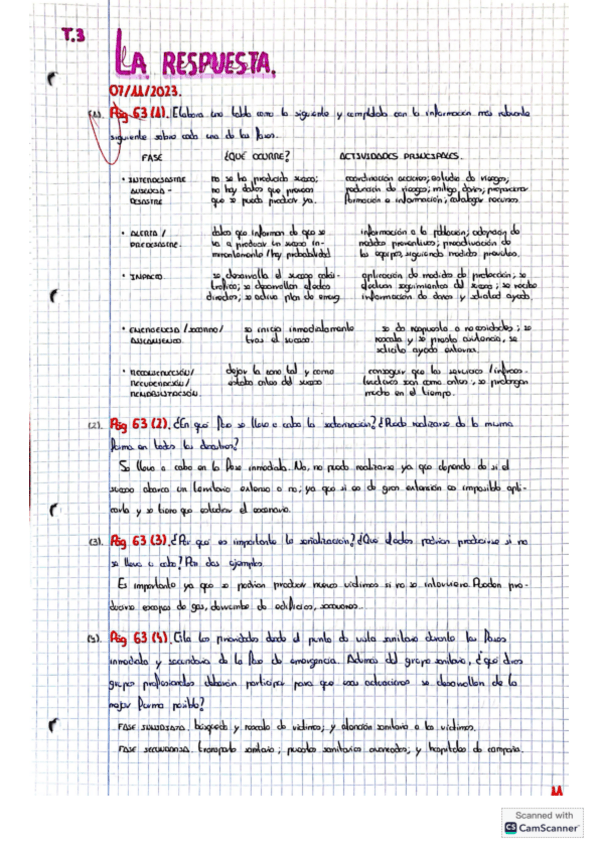 T.3
LA RESPUESTA.
07/11/2023.
(1). Pág 63 (1). Elabora una tabla como la siguiente y complétala con la información más relevante
siguiente sobre cada una de las fases.
FASE ¿QUÉ OCURRE? ACTIVIDADES PRINCIPALES.
• INTERDESASTRE no se ha producido suceso; coordinación acciones; estudio de riesgos;
AUSENCIA - no hay datos que prevean reducción de riesgos; mitiga daños; preparar
DESASTRE que se pueda producir ya. formación e información; catalogar recursos.
• ALERTA / datos que informan de que se información a la población; adopción de
PREDESASTRE. va a producir un suceso in- medidas preventivas; preactivación de
minentemente / hay probabilidad los equipos, siguiendo medidas previstas.
• IMPACTO se desarrolla el suceso catas- aplicación de medidas de protección; se
trófico; se desarrollan efectos efectúan seguimientos del suceso; se recibe
directos; se activa plan de emerg. información de daños y solicitud ayuda.
• EMERGENCIA / SOCORRO / se inicia inmediatamente se da respuesta a necesidades; se
AISLAMIENTO. tras el suceso. rescata y se presta asistencia, se
solicita ayuda externa.
• RECONSTRUCCIÓN / dejar la zona tal y como conseguir que los servicios / infraes-
RECUPERACIÓN / estaba antes del suceso tructuras sean como antes; se prolongan
REHABILITACIÓN. mucho en el tiempo.
(2). Pág 63 (2). ¿En qué fase se lleva a cabo la sectorización? ¿Puede realizarse de la misma
forma en todos los desastres?
Se lleva a cabo en la fase inmediata. No, no puede realizarse ya que depende de si el
suceso abarca un territorio extenso o no; ya que si es de gran extensión es imposible apli-
carla y se tiene que
(3). Pág 63 (3). ¿Por qué es importante la señalización? ¿Qué efectos podrían producirse si no
se lleva a cabo? Pon dos ejemplos.
Es importante ya que se podrían producir nuevas víctimas si no se interviniera. Pueden pro-
ducirse escapes de gas, derrumbe de edificios, socavones.
(4). Pág 63 (4). Cita las prioridades desde el punto de vista sanitario durante las fases
inmediata y secundaria de la fase de emergencia. Además del grupo sanitario, ¿qué otros
grupos profesionales deberían participar para que esas actuaciones se desarrollen de la
mejor forma posible?
FASE INMEDIATA. búsqueda y rescate de víctimas; y atención sanitaria a las víctimas.
FASE SECUNDARIA. transporte sanitario; puestos sanitarios avanzados; y hospitales de campaña.
11
Scanned with
CS CamScanner